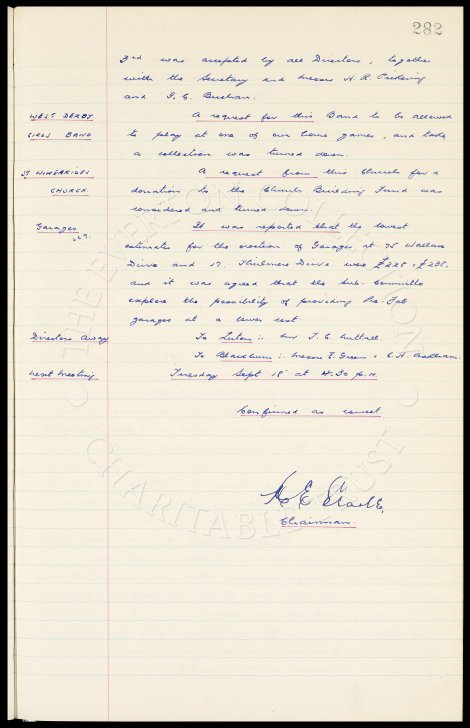 282
3rd was accepted by all Directors, together
with the Secretary and Messrs H. R. Pickering
and
WEST DERBY A request for this Band to be allowed
GIRLS BAND to play at one of our home games, and take
a collection was turned down.
ST WINEFRIDES A request from this Church for a
CHURCH. donation to the Church Building Fund was
considered and turned down.
Garages It was reported that the lowest
estimates for the erection of Garages at 75 Wallace
Drive and 17. Drive were £225 & £235.
and it was agreed that the Sub. Committee
explore the possibility of providing Pre. Fab
garages at a lower cost.
Directors Away To Luton :. Mr T. C. Nuttall.
To Blackburn :. Messrs E. Green & C. H. Askham.
Next Meeting Tuesday Sept 18th at 4.30 p.m.
Confirmed as correct.
Chairman.
THE EVERTON COLLECTION
CHARITABLE TRUST